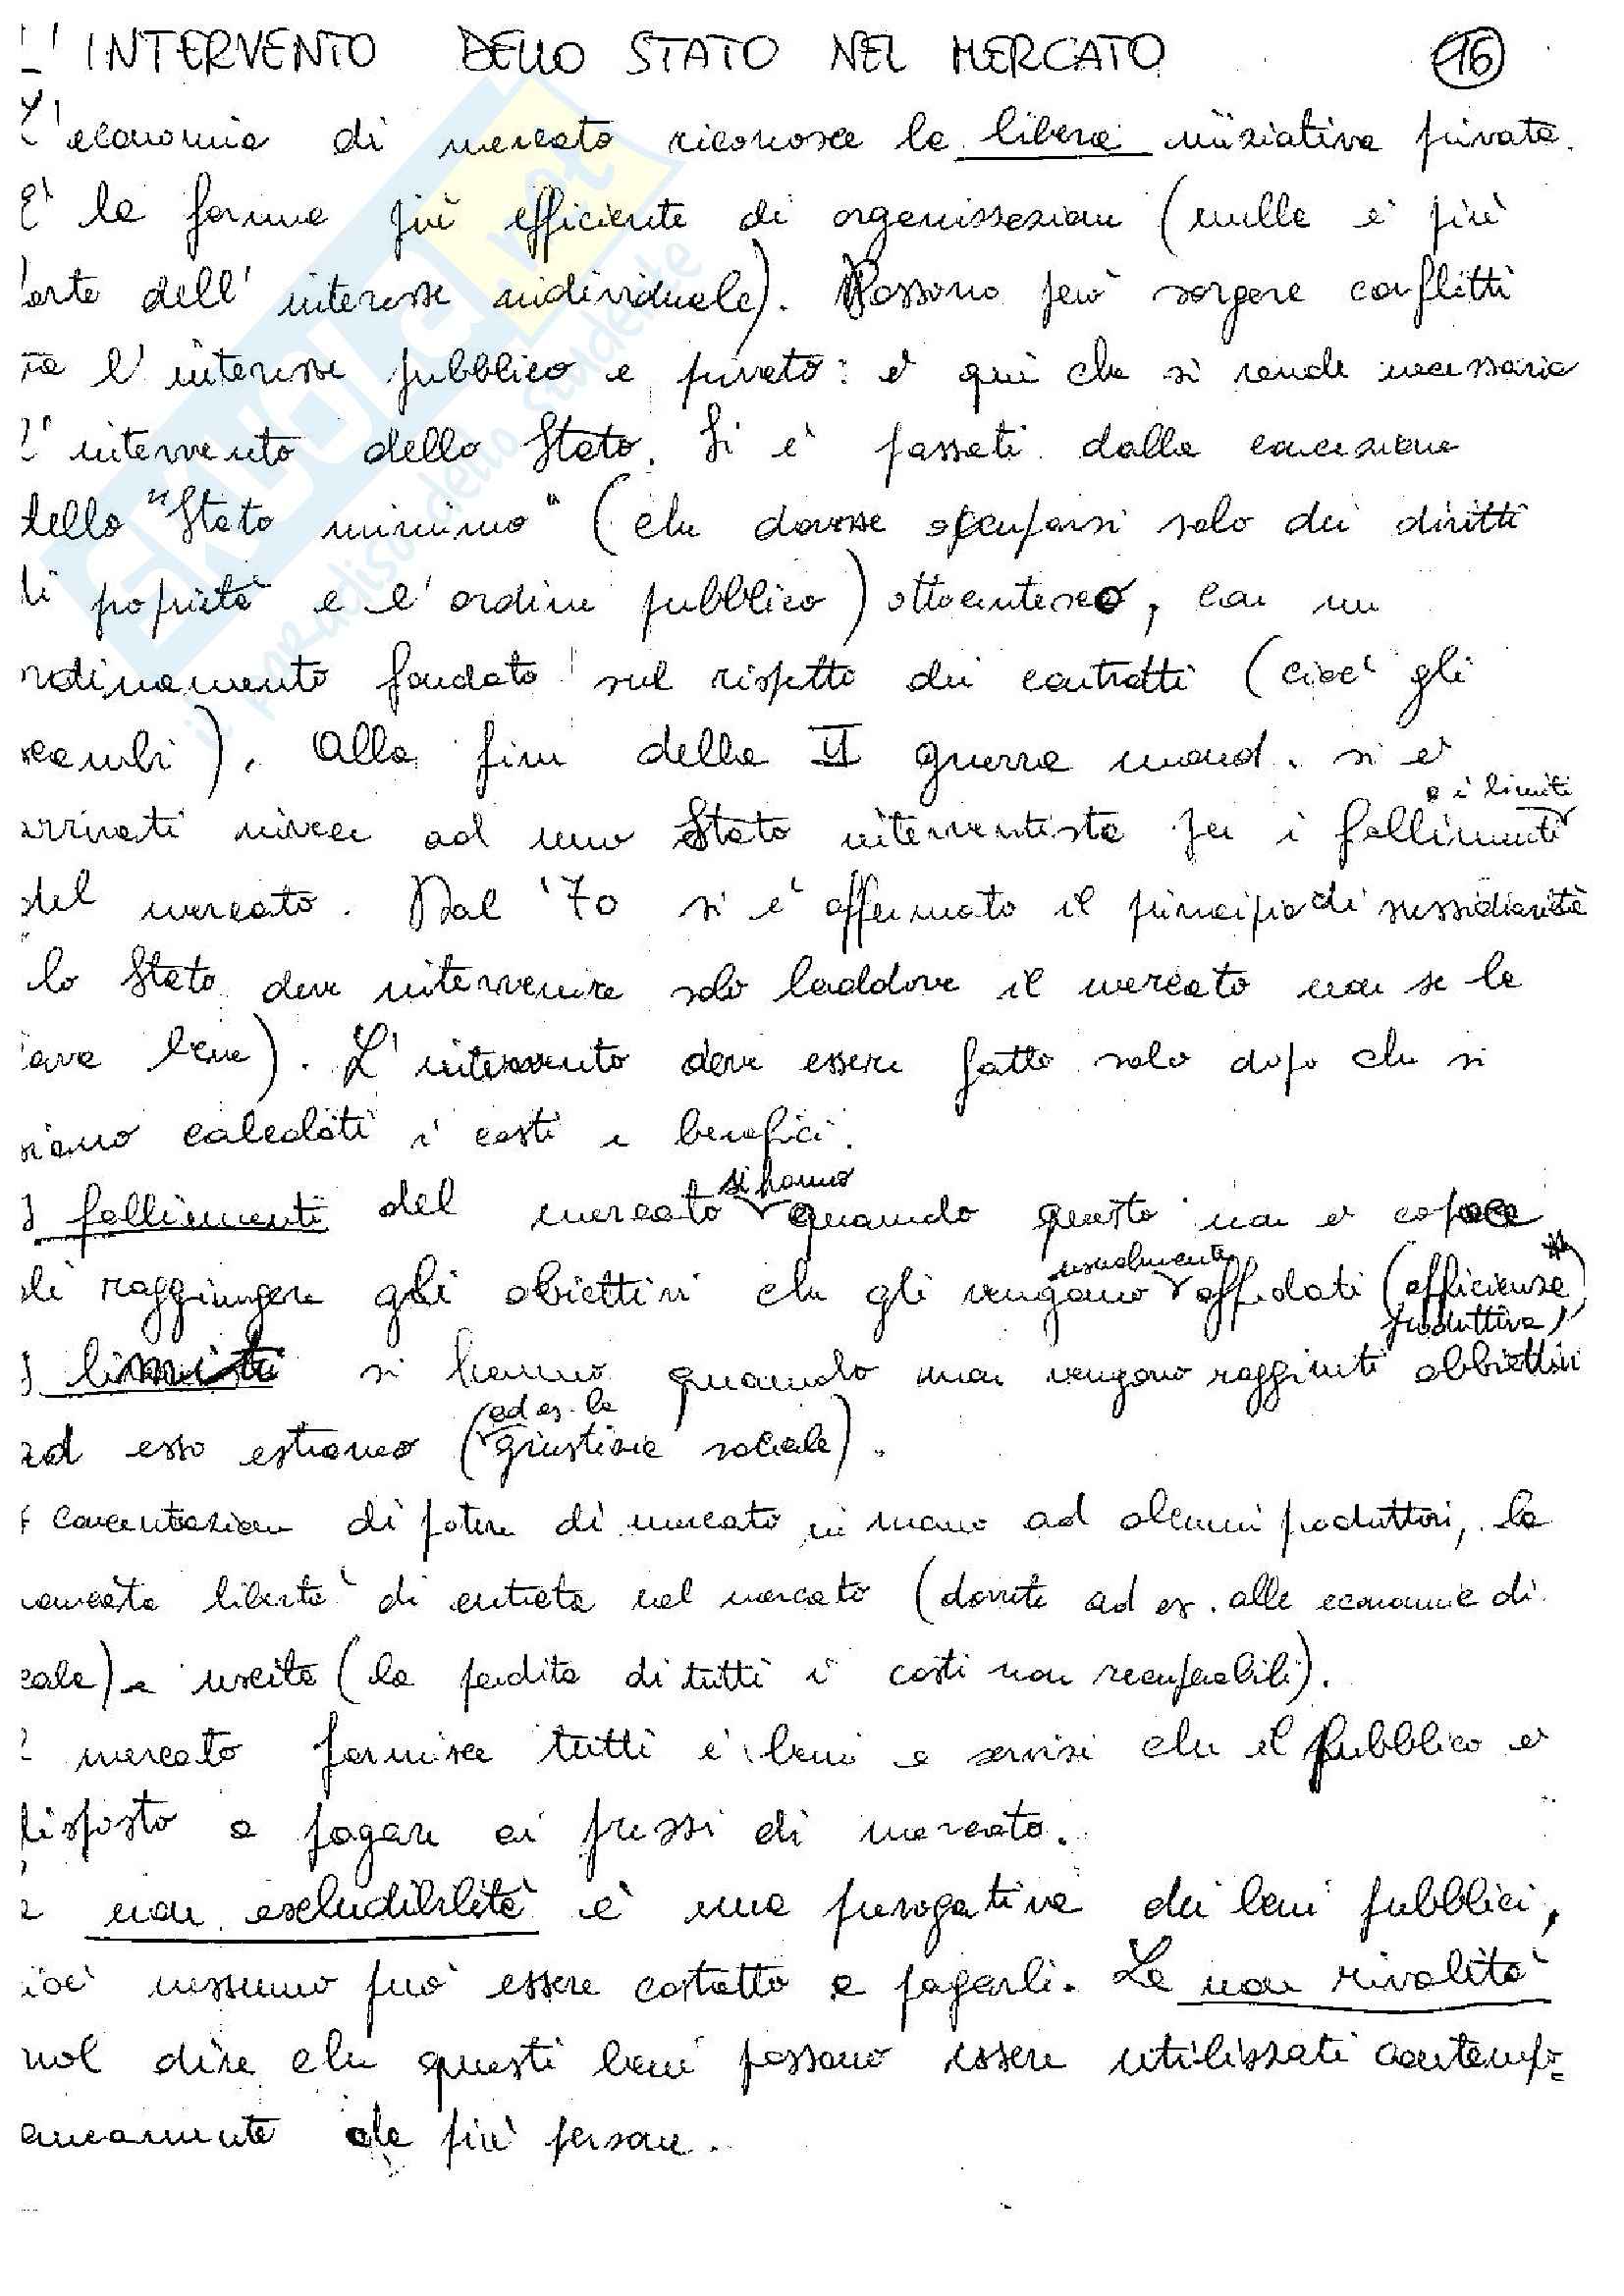 L'INTERVENTO DELLO STATO NEL MERCATO 16
L'economia di mercato riconosce la libera iniziativa privata.
E' la forma più efficiente di organizzazione (nulla è più
forte dell'interesse individuale). Possono però sorgere conflitti
tra l'interesse pubblico e privato: è qui che si rende necessario
l'intervento dello Stato. Si è passati dalla concezione
dello "Stato minimo" (che dovesse occuparsi solo dei diritti
di proprietà e l'ordine pubblico) ottocentesco, con un
ordinamento fondato sul rispetto dei contratti (cioè gli
scambi). Alla fine della II guerra mond. si è
arrivati invece ad uno Stato interventista per i fallimenti e i limiti
del mercato. Dal '70 si è affermato il principio di sussidiarietà
lo Stato deve intervenire solo laddove il mercato non se la
cava bene). L'intervento deve essere fatto solo dopo che si
siano calcolati i costi e benefici.
I fallimenti del mercato si hanno quando questo non è capace
di raggiungere gli obiettivi che gli vengono usualmente affidati (efficienza produttiva)*
I limiti si hanno quando non vengono raggiunti obbiettivi
ad esso estraneo (ad es. la giustizia sociale).
* concentrazione di potere di mercato in mano ad alcuni produttori, la
mancata libertà di entrata nel mercato (dovute ad es. alle economie di
scala) e uscita (la perdita di tutti i costi non recuperabili).
Il mercato fornisce tutti i beni e servizi che il pubblico è
disposto a pagare ai prezzi di mercato.
La non escludibilità è una prerogativa dei beni pubblici,
cioè nessuno può essere costretto a pagarli. La non rivalità
vuol dire che questi beni possono essere utilizzati contempo-
raneamente da più persone.
SKUOLA.net
il paradiso dello studente